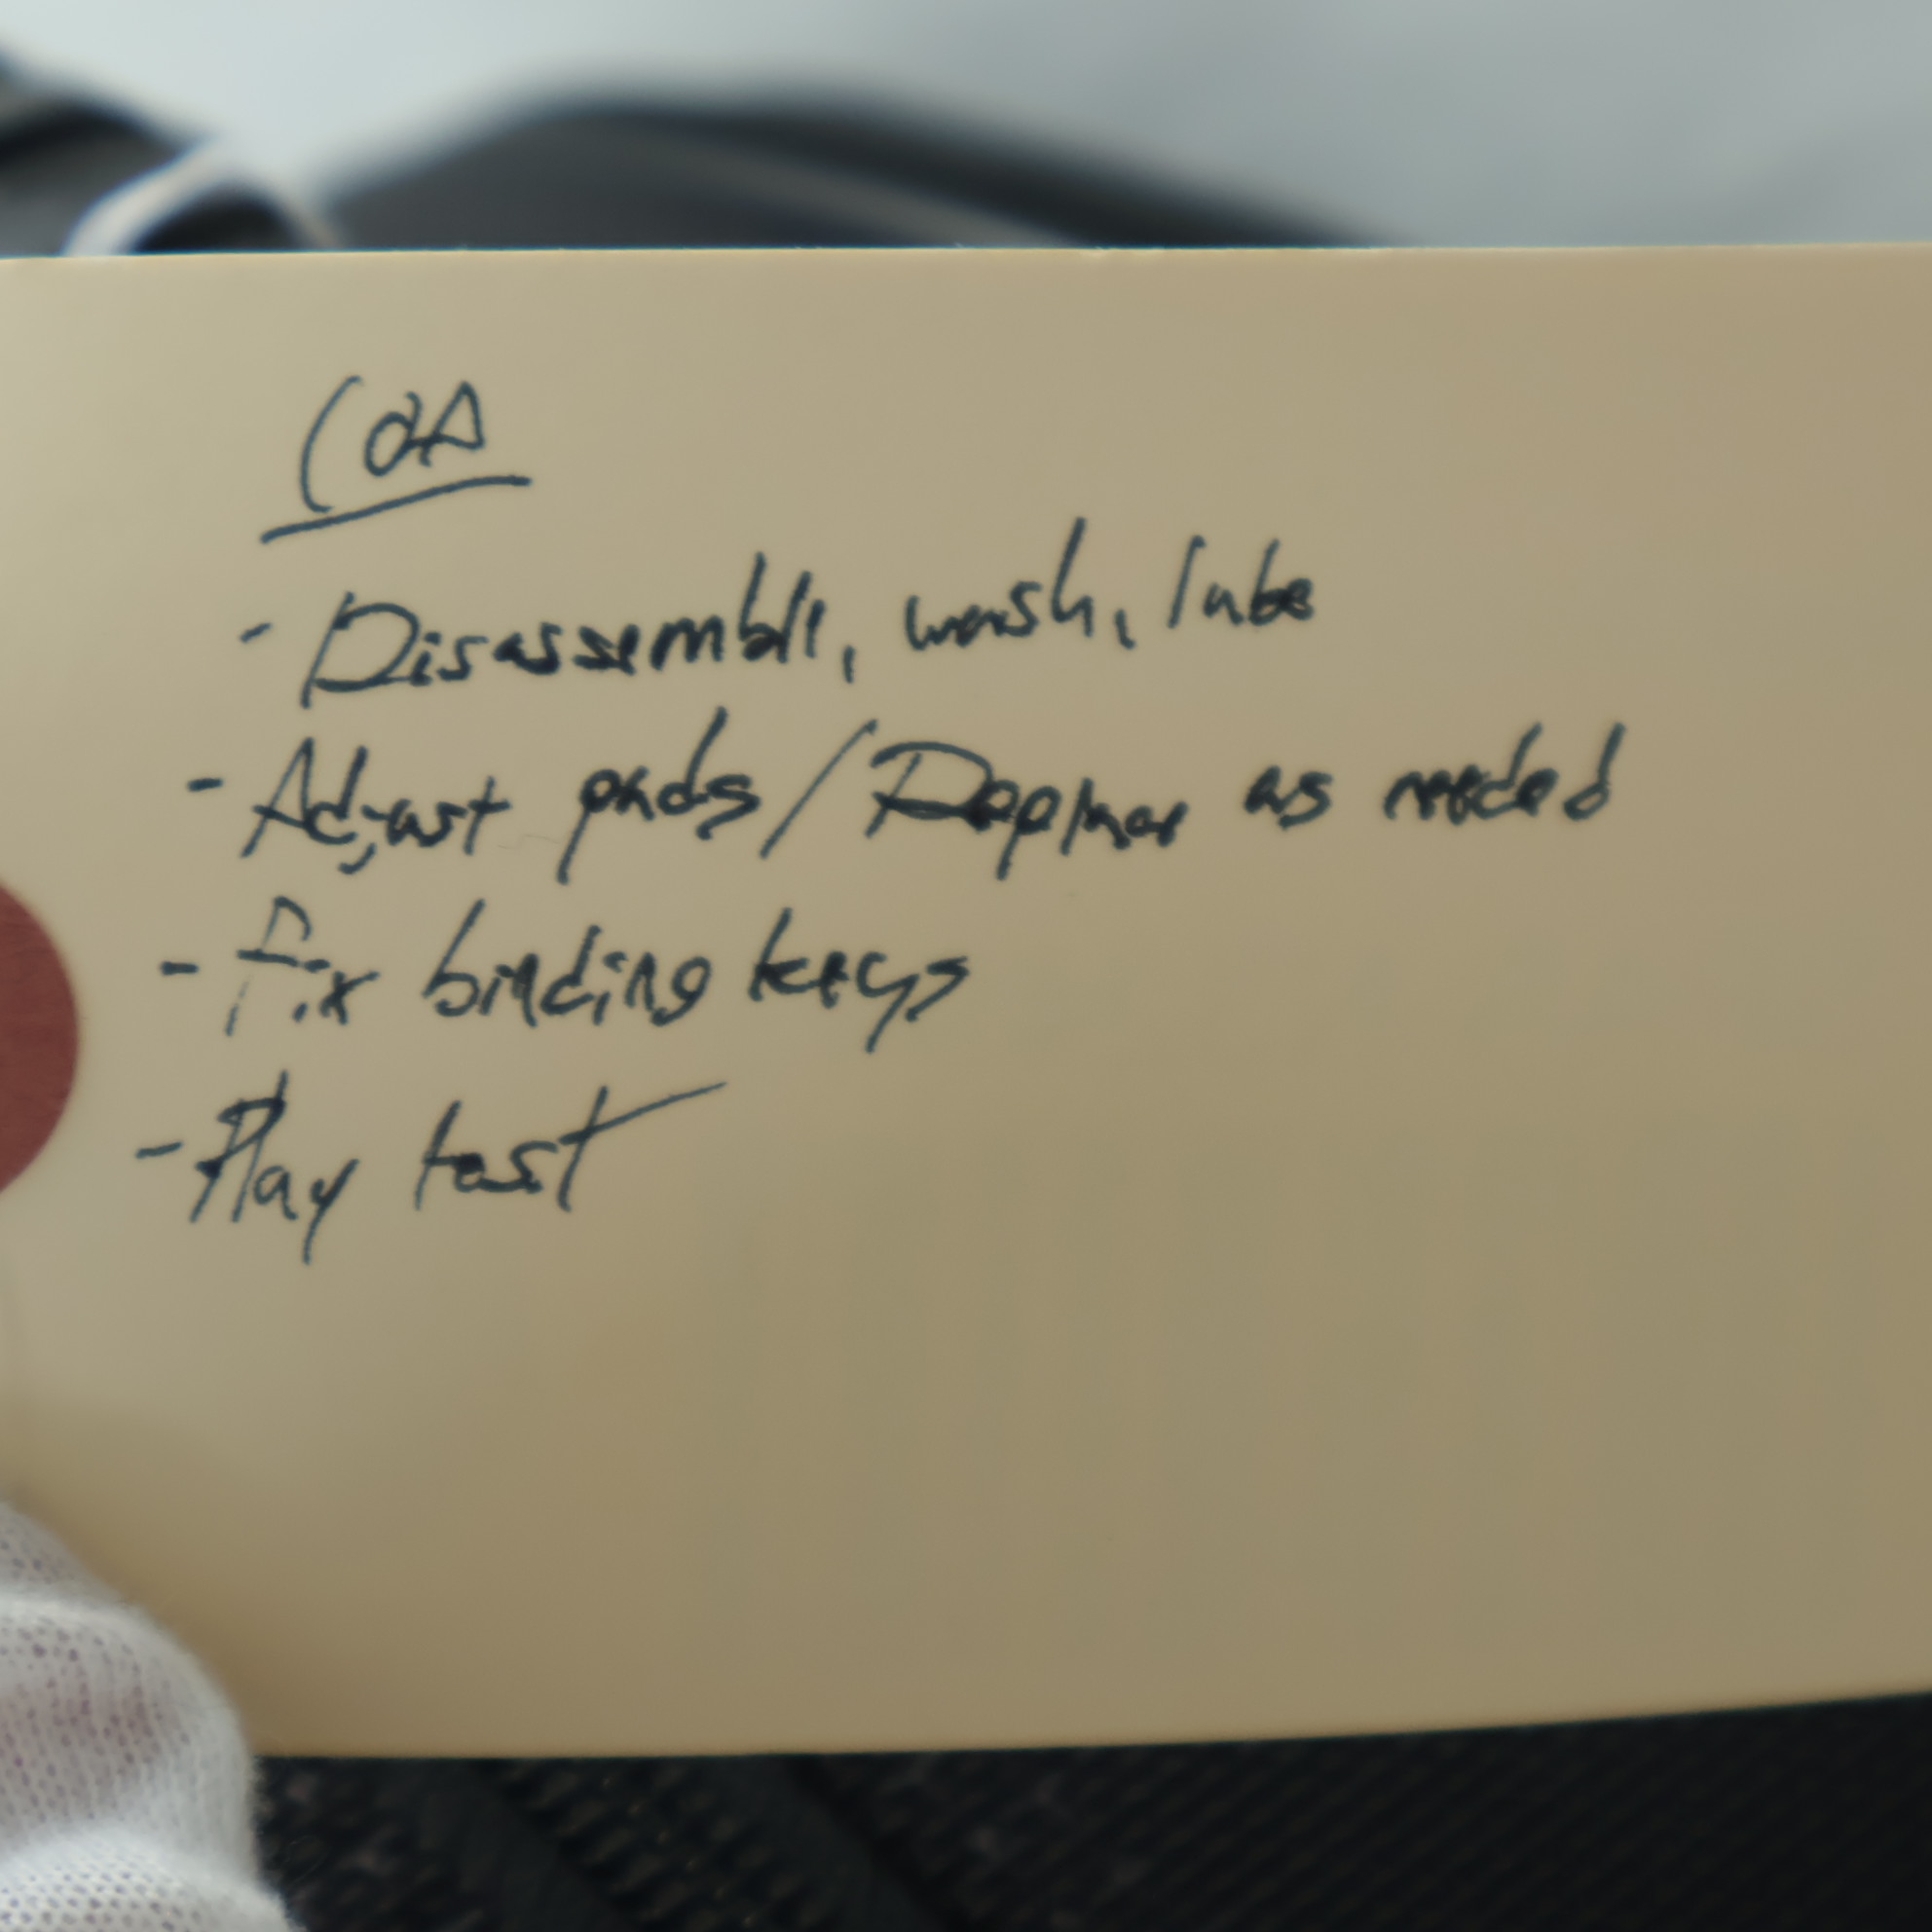 COA
- Disassemble, wash, lube
- Adjust pads/Replace as needed
- Fix binding keys
- Play test